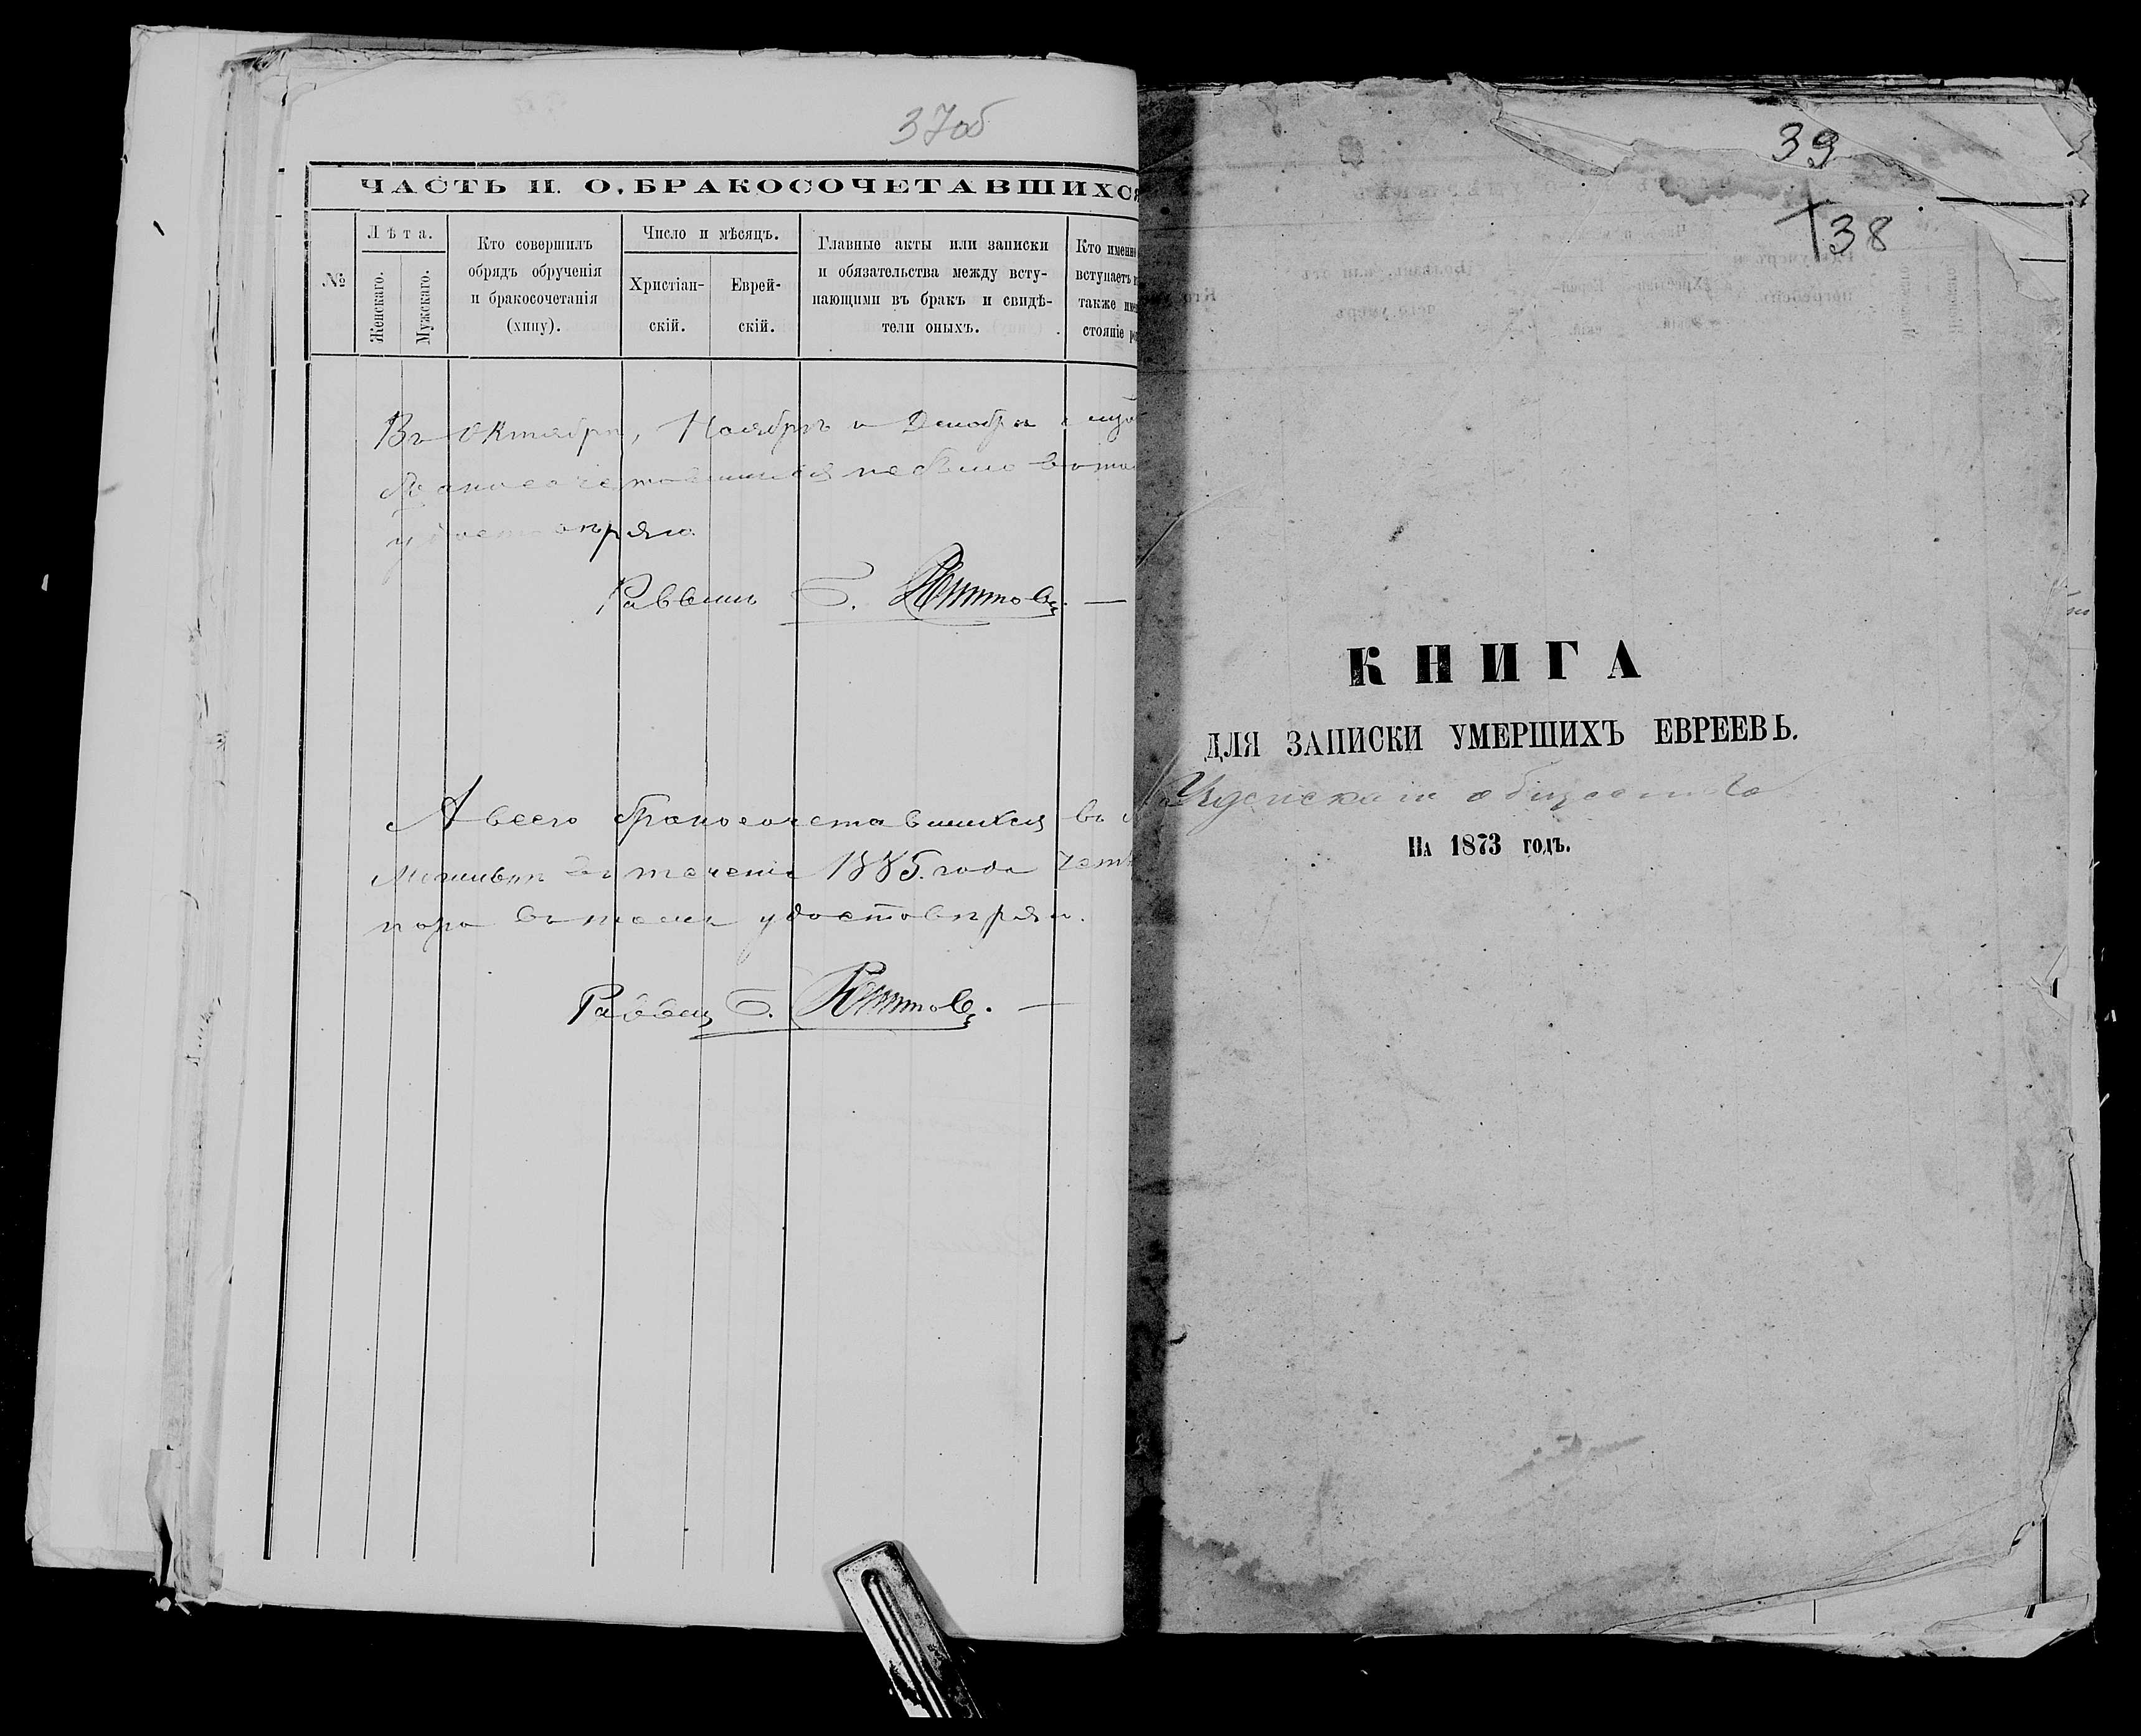 37об
ЧАСТЬ II. О БРАКОСОЧЕТАВШИХС
№
Лѣта.
Женскаго.
Мужскаго.
Кто совершилъ
обрядъ обрученія
и бракосочетанія
(хипу).
Число и мѣсяцъ.
Христіан-
скій.
Еврей-
скій.
Главные акты или записки
и обязательства между всту-
пающими въ бракъ и свидѣ-
тели оныхъ.
Кто именно
вступаетъ
также
стояніе
Въ Октябрѣ, Ноябрѣ и Декабрѣ
бракосочетавшихся не было въ
удостовѣряю
Раввинъ Б.
А всего бракосочетавшихся въ
въ теченіе 1885. года
пара въ томъ удостовѣряю.
Раввинъ Б.
39
38
КНИГА
ДЛЯ ЗАПИСКИ УМЕРШИХЪ ЕВРЕЕВЪ.
общества
НА 1873 ГОДЪ.